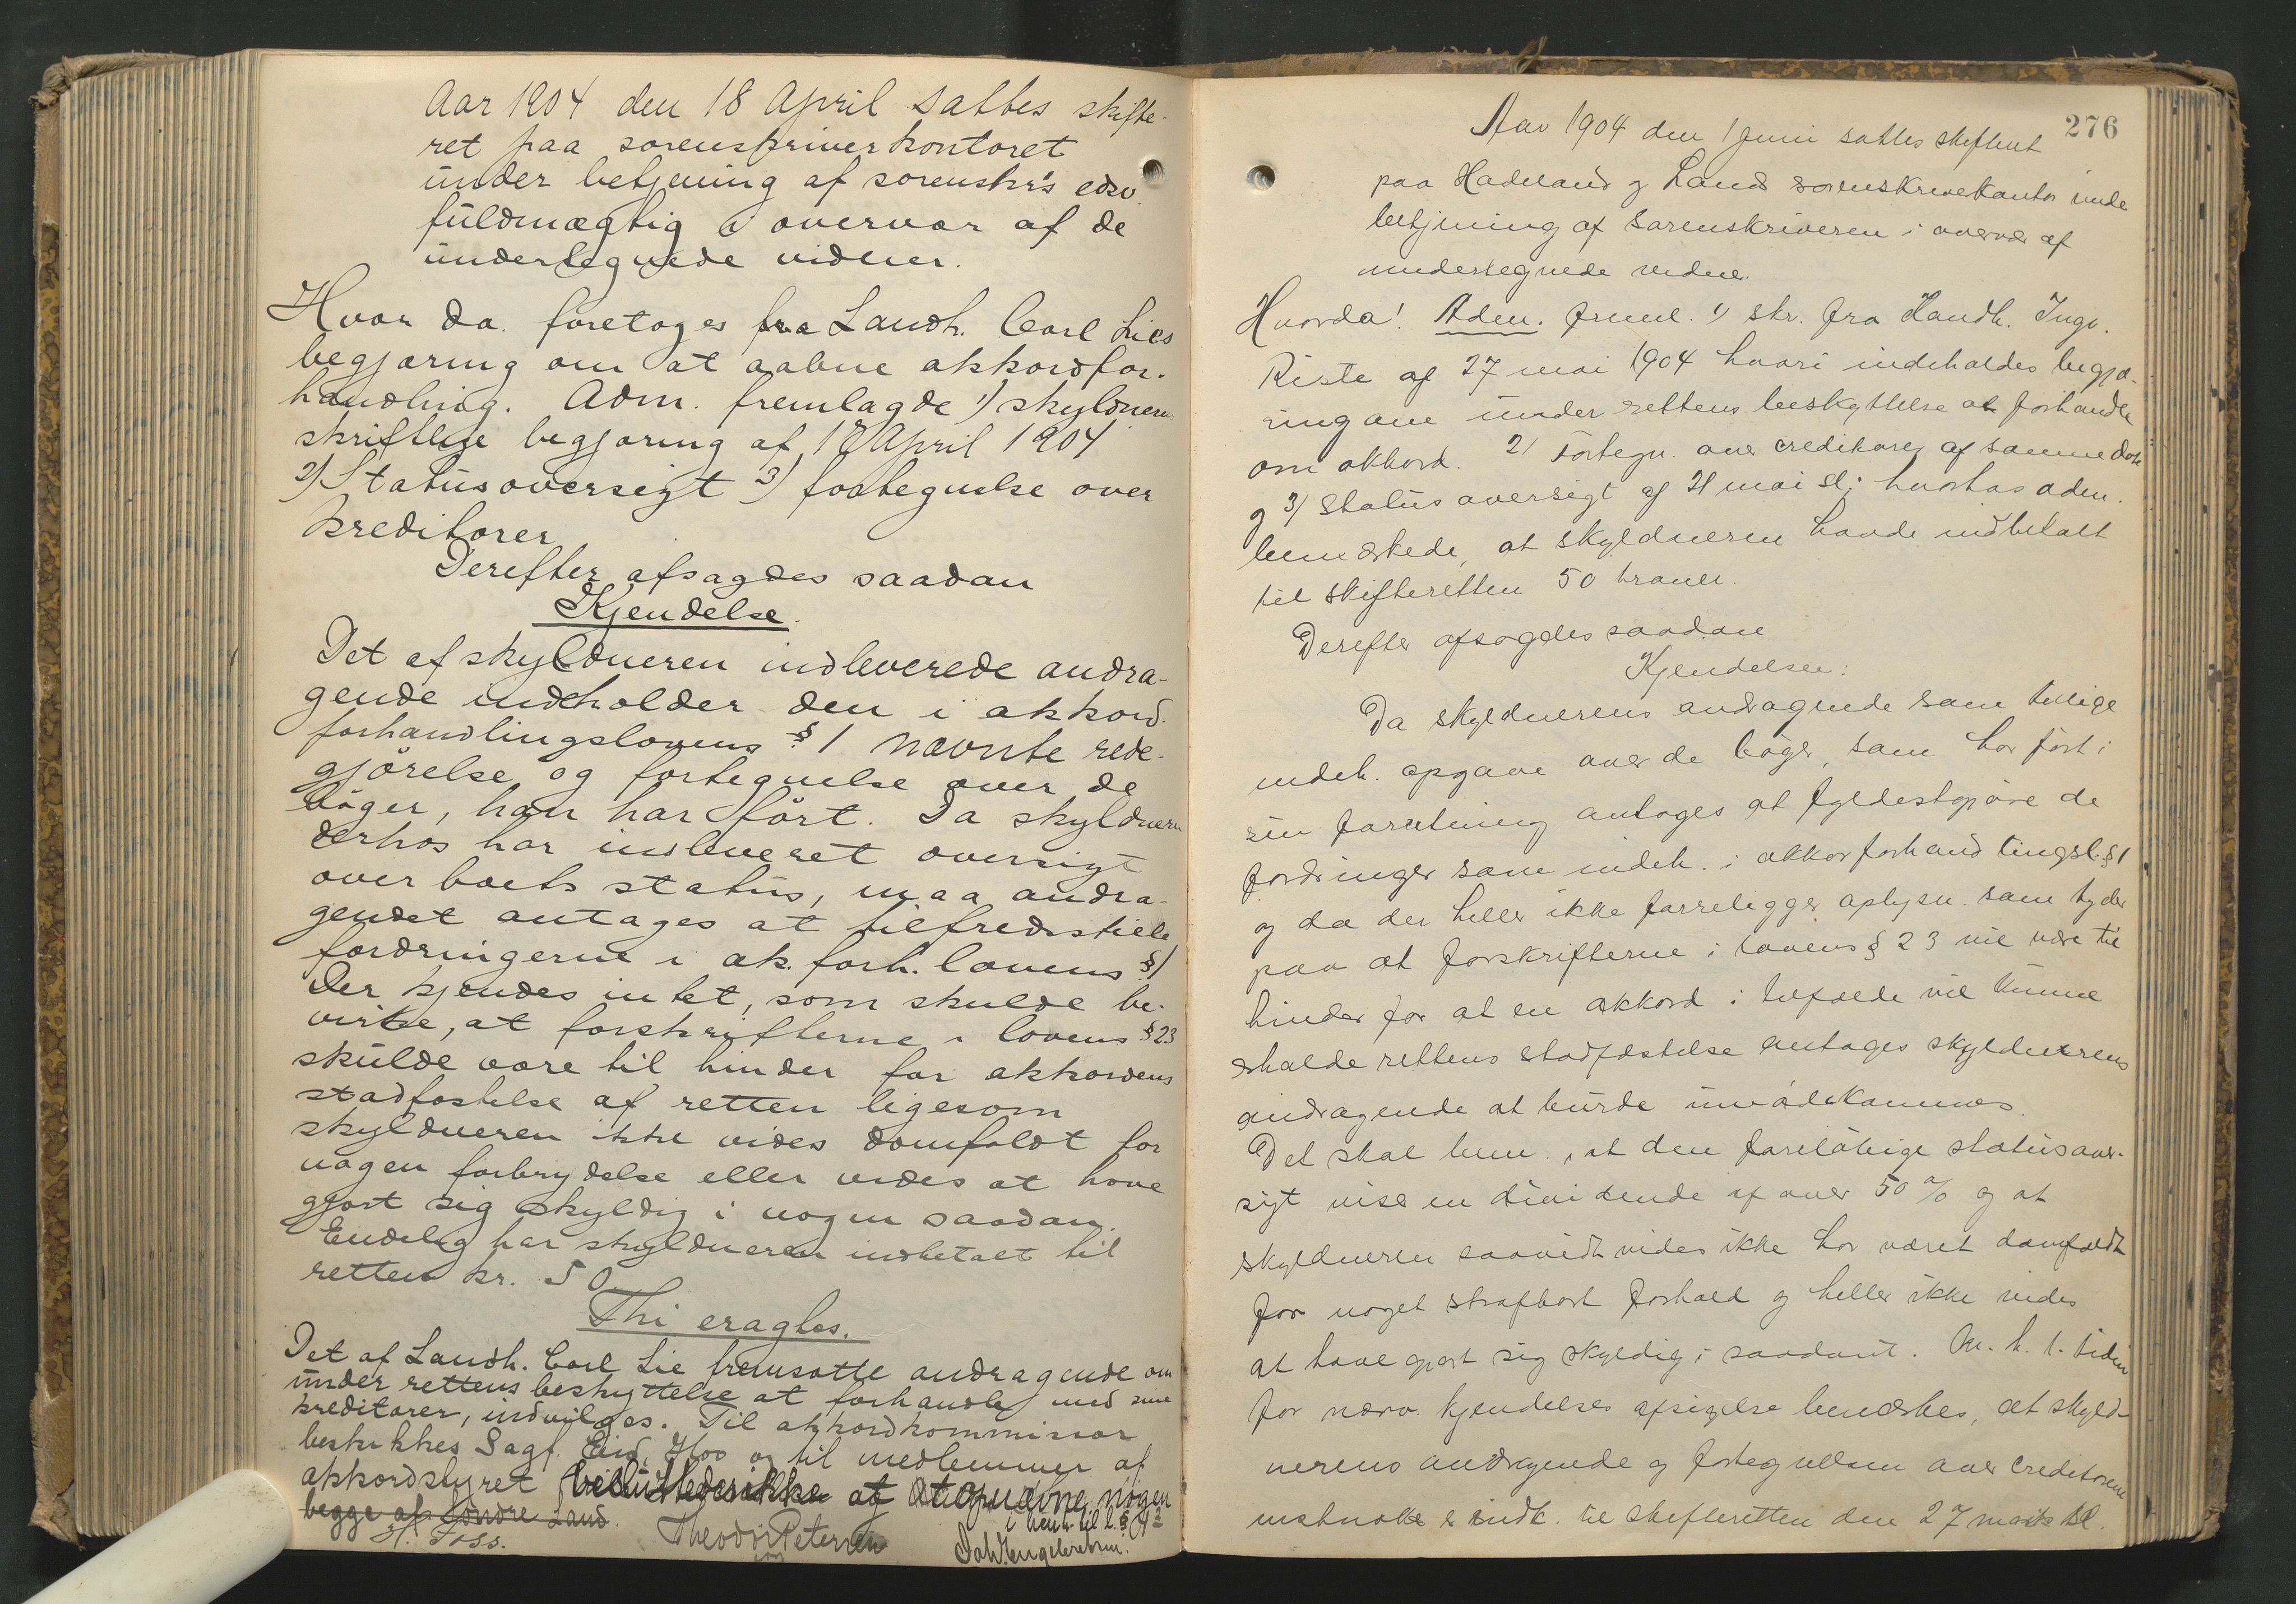 Aar 1904 den 18 April sattes skifte-
ret paa sorenskriverkontoret
under betjening af sorenskr's edsv.
fuldmægtig i overvær af de
undertegnede vidner.
Hvor da foretages fra Landh. Carl Lies
begjæring om at aabne akkordfor-
handling. Adm. fremlagde 1) skyldneren
skriftlige begjæring af 18 April 1904
2) Statusoversigt 3) fortegnelse over
kreditorer
Derefter afsagdes saadan
Kjendelse.
Det af skyldneren indleverede andra-
gende indeholder den i akkord-
forhandlingslovens § 1 nævnte rede-
gjörelse og fortegnelse over de
böger, han har fört. Da skyldneren
derhos har indleveret oversigt
over boets status, maa andra-
gendet antages at tilfredsstille
fordringerne i ak. forh. lovens § 1
Der kjendes intet, som skulde be-
virke, at forskrifterne i lovens § 23
skulde være til hinder for akkordens
stadfæstelse af retten ligesom
skyldneren ikke vides domfældt for
nogen forbrydelse eller vides at have
gjort sig skyldig i nogen saadan.
Endelig har skyldneren indbetalt til
retten kr. 50
Thi eragtes.
Det af Landh. Carl Lie fremsatte andragende om
under rettens beskyttelse at forhandle med sine
kreditorer, indvilges. Til akkordkommissær
beskikkes Sagf. Hoo og til medlemmer af
akkordstyret at opnævne nogen
begge af Söndre Land. i henh. til l. § 4
H. Foss. Theodor Petersen
276
Aar 1904 den 1 Juni sattes skifteret
paa Hadeland og Land sorenskriverkontor under
betjening af sorenskriveren i overvær af
undertegnede vidner.
Hvorda! Adm. freml. 1) skr. fra Handh. Ingv.
Riste af 27 mai 1904 hvori indeholdes begjæ-
ring om under rettens beskyttelse at forhandle
om akkord. 2) Fortegn. over creditorer af samme dato
og 3) Statusoversigt af 21 mai sl; hvorhos adm.
bemærkede, at skyldneren havde indbetalt
til skifteretten 50 kroner.
Derefter afsagdes saadan
Kjendelse:
Da skyldnerens andragende som tillige
indeh. opgave over de böger, som har fört i
sin forretning antages at fyldestgjöre de
fordringer som indeh. i akkorforhandlingsl. § 1
og da der heller ikke forreligger oplysn. som tyder
paa at forskrifterne i lovens § 23 vil være til
hinder for at en akkord i tilfælde vil kunne
erholde rettens stadfæstelse antages skyldnerens
andragende at burde imödekommes.
Det skal bem., at den foreløbige statusover-
sigt viser en dividende af over 50 % og at
skyldneren saavidt vides ikke har været domfældt
for noget strafbart forhold og heller ikke vides
at have gjort sig skyldig i saadant. M. h. t. tiden
for nærv. kjendelses afsigelse bemærkes, at skyld-
nerens andragende og fortegnelsen over creditorene
indk. til skifteretten den 27 mai sl.